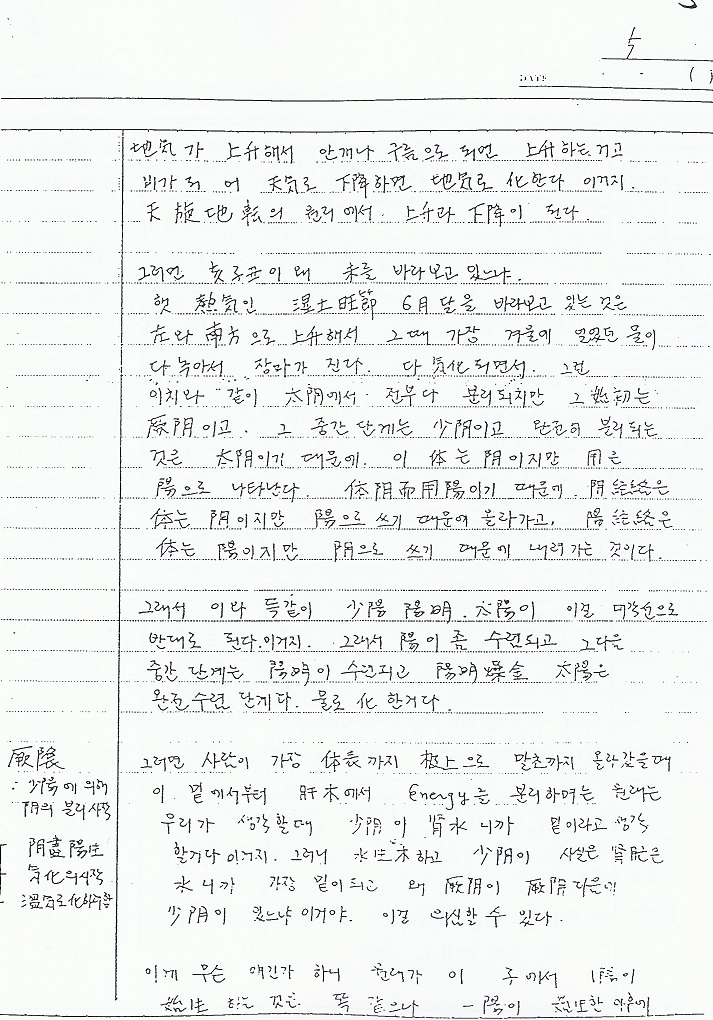 5
DATE . . (
地気가 上升해서 안개나 구름으로 되면 上升하는거고
비가 되어 天気로 下降하면 地気로 化한다 이거지.
天旋地転의 원리에서 上升과 下降이 된다.
그러면 亥子丑이 왜 未를 바라보고 있느냐.
햇 熱気인 湿土旺節 6月달을 바라보고 있는 것은
左와 南方으로 上升해서 그때 가장 겨울에 얼었던 물이
다 녹아서 장마가 진다. 다 気化되면서. 그런
이치와 같이 太阴에서 전부다 분리되지만 그 初는
厥阴이고. 그 중간단계는 少阴이고 완전히 분리되는
것은 太阴이기 때문에. 이 体는 阴이지만 用은
陽으로 나타난다. 体阴而用陽이기 때문에. 阴経絡은
体는 阴이지만 陽으로 쓰기 때문에 올라가고, 陽経絡은
体는 陽이지만 阴으로 쓰기 때문에 내려가는 것이다.
그래서 이와 똑같이 少陽 陽明. 太陽이 이걸 대각선으로
반대로 된다.이거지. 그래서 陽이 좀 수련되고 그다음
중간단계는 陽明이 수련되고 陽明燥金 太陽은
완전수련 단계다. 물로 化한거다.
그러면 사람이 가장 体表까지 極上으로 말초까지 올라갔을때
이 밑에서부터 肝木에서 Energy를 분리하며는 원래는
우리가 생각할때 少阴이 腎水니까 밑이라고 생각
할거다 이거지. 그러니 水生木하고 少阴이 사실은 腎臟은
水니까 가장 밑이되고 왜 厥阴이 厥陰다음에
少阴이 있느냐 이거야. 이걸 의심할 수 있다.
이게 무슨 얘긴가 하니 원래가 이 子에서 1陽이
始生하는 것은 똑 같으나 一陽이 始生한 이후에
厥陰
: 少陽에 의해
阴의 분리시작
阴盡陽生
気化의시작
温気로化하여함